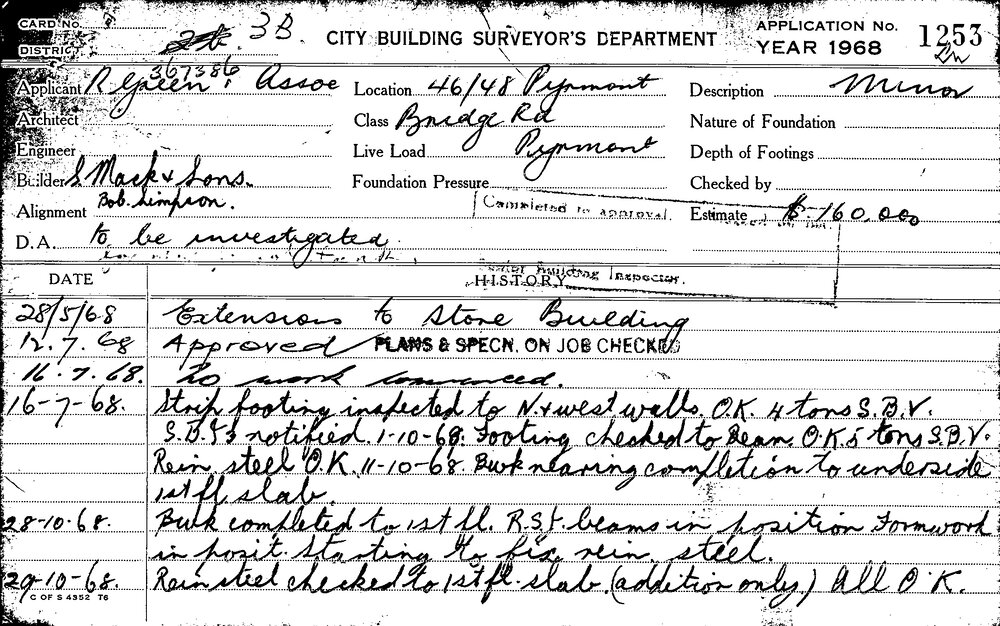 CARD No.
DISTRICT
3B.
CITY BUILDING SURVEYOR'S DEPARTMENT
APPLICATION No. 1253
YEAR 1968
367386
Applicant R Green & Assoc
Location 46/48 Pyrmont
Description Minor
Architect
Class Bridge Rd
Nature of Foundation
Engineer
Live Load Pyrmont
Depth of Footings
Builder S Mack & Sons.
Foundation Pressure
Checked by
Bob. Simpson.
Alignment
Completed to approval.
Estimate $-160,000
D.A. to be investigated
Building Inspector.
DATE
HISTORY
28/5/68 Extensions to Store Building
12.7.68 Approved PLANS & SPECN. ON JOB CHECKED
16.7.68. No work commenced.
16-7-68. Strip footing inspected to N.& west walls. O.K. 4 tons S.B.V.
notified. 1-10-68. Footing checked to Beam O.K. 5 tons S.B.V.
Rein. steel O.K. 11-10-68 Bwk nearing completion to underside
1st fl. slab.
28-10-68. Bwk completed to 1st fl. R.S.J. beams in position Formwork
in posit. Starting to fix rein. steel.
29-10-68. Rein steel checked to 1st fl. slab. (addition only) All O.K.
C OF S 4352 76